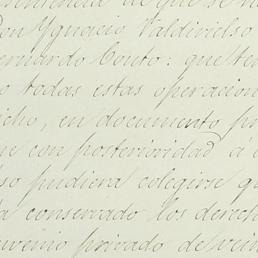 de que se
Don Ygnacio Valdivielso
ernardo Couto: que
todas estas operacion
icho, en documento pr
con posterioridad á
so pudiera colegirse q
a conservado los derech
nvenio privado de vein